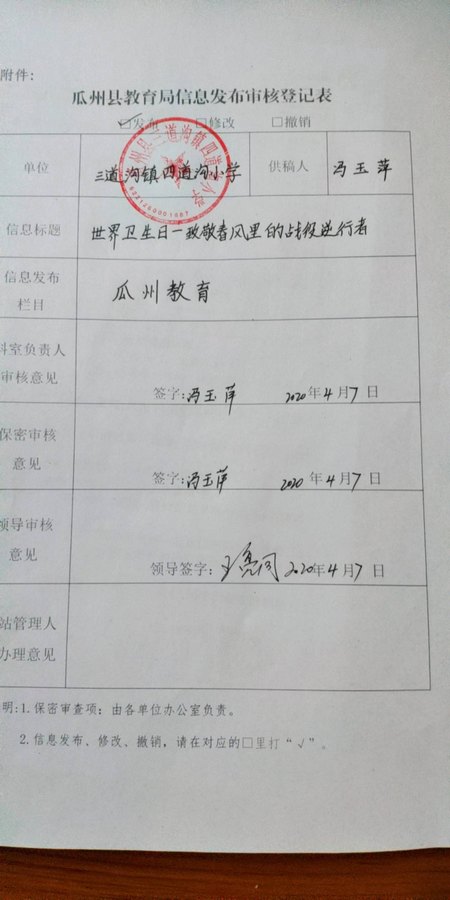 附件:
瓜州县教育局信息发布审核登记表
☑发布 □修改 □撤销
单位 三道沟镇四道沟小学 供稿人 冯玉萍
信息标题 世界卫生日一致敬春风里的战役逆行者
信息发布
栏目
瓜州教育
科室负责人
审核意见
签字:冯玉萍 2020年4月7日
保密审核
意见
签字:冯玉萍 2020年4月7日
领导审核
意见
领导签字: 2020年4月7日
站管理人
办理意见
明:1.保密审查项:由各单位办公室负责。
2.信息发布、修改、撤销,请在对应的□里打“√”。